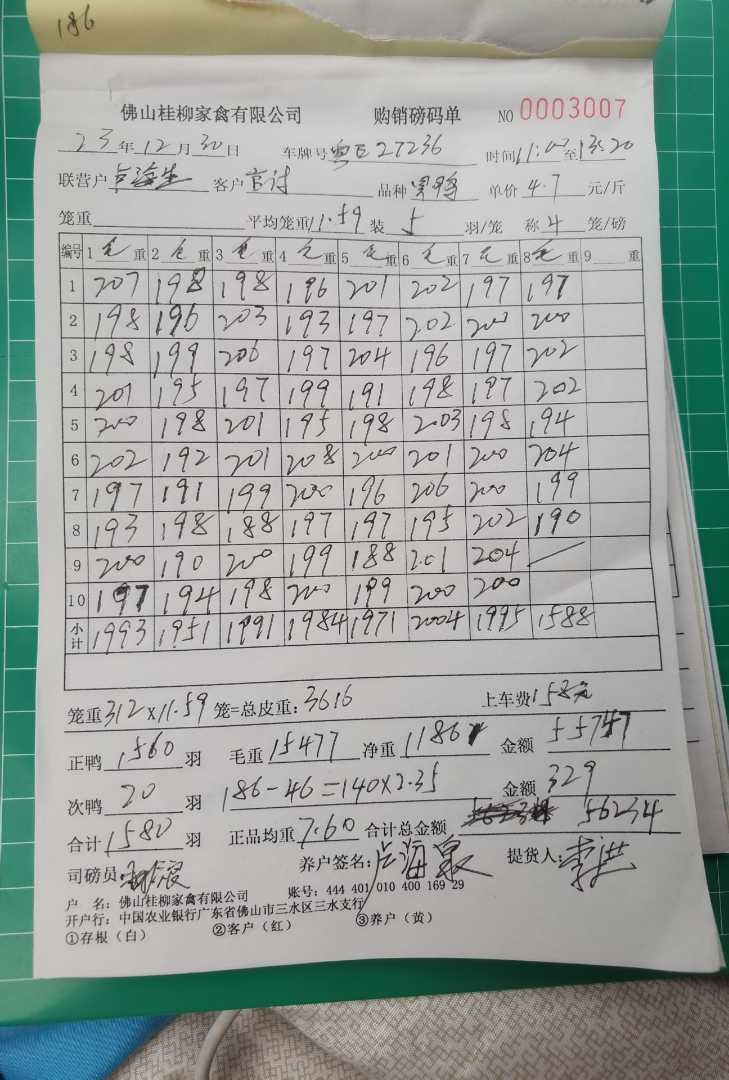 186
佛山桂柳家禽有限公司 购销磅码单 NO 0003007
23年12月30日 车牌号粤E27236 时间11:00至13:20
联营户 客户 品种 单价 4.7 元/斤
笼重 平均笼重11.59 装 5 羽/笼 称 4 笼/磅
编号 1毛重 2毛重 3毛重 4毛重 5毛重 6毛重 7毛重 8毛重 9 重
1 207 198 198 196 201 202 197 197
2 198 196 203 193 197 202 200 200
3 198 199 206 197 204 196 197 202
4 201 195 197 199 191 198 197 202
5 200 198 201 195 198 203 198 194
6 202 192 201 208 200 201 200 204
7 197 191 199 200 196 206 200 199
8 193 198 188 197 197 195 202 190
9 200 190 200 199 188 201 204
10 197 194 198 200 199 200 200
小计 1993 1951 1991 1984 1971 2004 1995 1588
笼重312×11.59笼=总皮重:3616 上车费158元
正鸭 1560 羽 毛重 15477 净重 11861 金额 55747
次鸭 20 羽 186-46=140×2.35 金额 329
合计 1580 羽 正品均重 7.60 合计总金额 56234
司磅员: 养户签名:卢海泉 提货人:李洪
户 名:佛山桂柳家禽有限公司 账号:444 401 010 400 169 29
开户行:中国农业银行广东省佛山市三水区三水支行
①存根(白) ②客户(红) ③养户(黄)